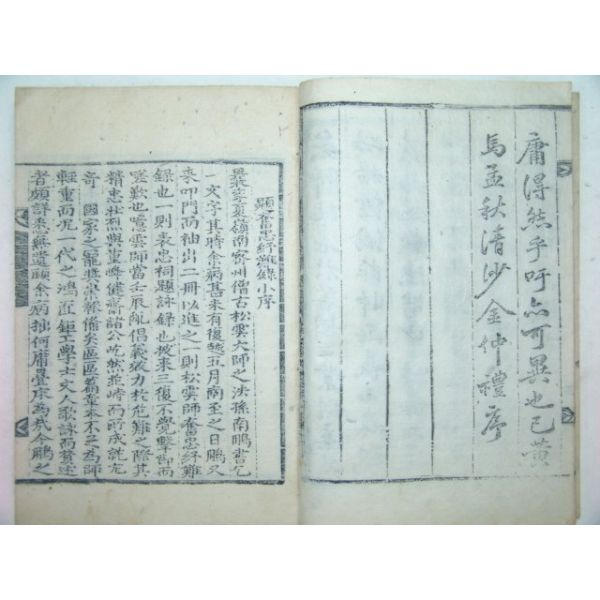 庸得然乎吁亦可異也已黃
馬孟秋清沙金仲禮序
題奮忠紓難錄小序
夏嶺南密州僧古松雲大師之法孫南鵬書乞
一文字其時余病甚未有復越五月南至之日鵬又
來叩門而袖出二冊以進之一則松雲師奮忠紓難
錄也一則表忠祠題詠錄也披來三復不覺擊節而
嗟歎也噫雲師當壬辰亂倡義戮力於危難之際其
精忠壯烈與重峰健齋諸公屹然並峙而所成就尤
奇 國家之寵奬崇報備矣區區篇章本不足為師
輕重而况一代之鴻匠鉅工學士文人歌詠而贊述
者頗詳悉無遺顧余病拙何庸疊床為哉今鵬之